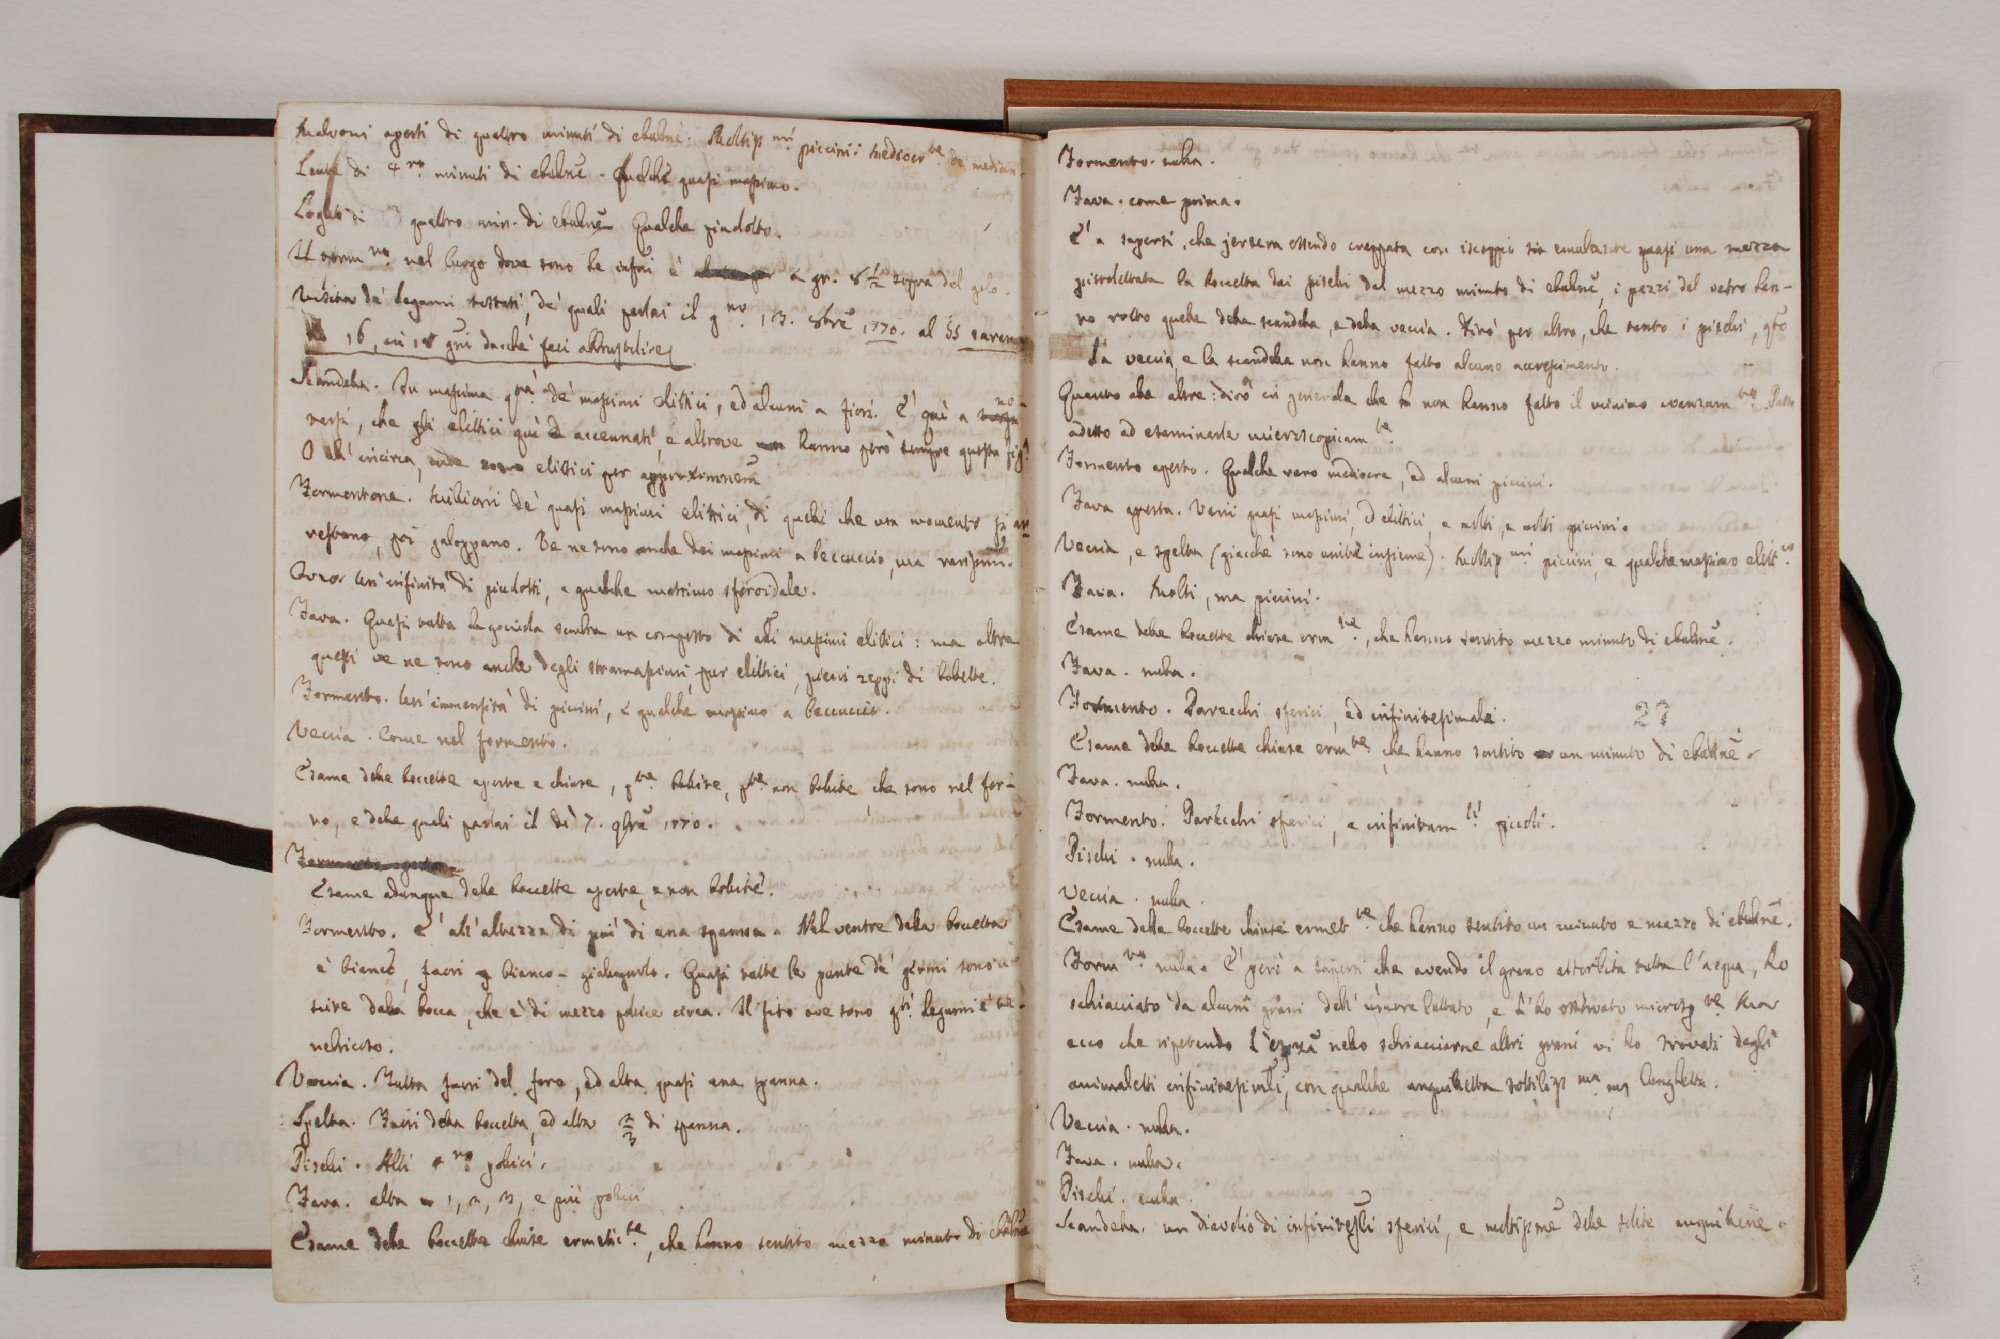 Malvoni aperti di quattro minuti di ebulne. Moltiss mi piccini: mediocr te de' median-
Lente di 4 ro minuti di ebulne. Qualche quasi massimo.
di quattro min. di ebulne Qualche piudotto.
Il form to nel luogo dove sono le infusi è a gr. 8 1/2 sopra del gelo.
Visita de' legumi tostati, de' quali parlai il g no 13. 8bre 1770. al §§
16, cui 18 gni dacchè feci abbrustolire
Scandella. Su massima de' massimi elittici, ed alcuni a fiori. E' quì a no-
tarsi, che gli elittici quì accennati, e altrove hanno però sempre questa fig.
O all' incirca, onde sono elittici per approximnem
Formentone. Milioni de' quasi massimi elittici, di quelli che un momento si ar
restano, poi galoppano. Ve ne sono anche dei massimi a beccuccio, ma rarissimi.
Orzo. Un' infinità di piudotti, e qualche massimo sferoidale.
Fava. Quasi tutta la gocciola sembra un composto di massimi elitici: ma oltre
questi ve ne sono anche degli stramassimi, pur elittici, pieni zeppi di bolette.
Formento. Un' immensità di piccini, e qualche massimo a beccuccio.
Veccia. Come nel formento.
Esame delle boccette aperte e chiuse, p te bollite, p te non bollite che sono nel for-
no, e delle quali parlai il dì 7. 9bre 1770.
Formento aperto
Esame adunque delle boccette aperte, e non bollite.
Formento. E' all' altezza di più di una spanna. Nel ventre della boccetta
è bianco, fuori bianco-giallognolo. Quasi tutte le punte de' germi sono u
scire dalla bocca, che è di mezzo police circa. Il sito ove sono q ti legumi è te-
nebricoso.
Veccia. Tutta fuori del foro, ed alta quasi una spanna.
Spelta. Fuori della boccetta, ed alta 2/3 di spanna.
Piselli. Alti 4 ro police.
Fava. alta 1, 2, 3, e più police
Esame delle boccette chiuse ermetic te, che hanno sentito mezzo minuto di ebulne
Formento. nulla.
Fava. come prima.
E' a sapersi, che jersera essendo creppata con iscoppio sia emulatore quasi una mezza
pistolettata la boccetta dai piselli del mezzo minuto di ebulne, i pezzi del vetro han-
no rotto quelle della scandella, e della veccia. Dirò per altro, che tanto i piselli, qto
la veccia, e la scandella non hanno fatto alcuno accrescimento.
Quanto alle altre: dirò in generale che non hanno fatto il minimo avanzam to. Passo
adesso ad esaminarle microscopicam te.
Formento aperto. Qualche raro mediocre, ed alcuni piccini.
Fava aperta. Varii quasi massimi, ed elittici, e molti, e molti piccini.
Veccia, e spelta (giacchè sono unite insieme). Moltiss mi piccini, e qualche massimo elitt co.
Fava. Molti, ma piccini.
Esame delle boccette chiuse erm te, che hanno sentito mezzo minuto di ebulne.
Fava. nulla.
Formento. Parecchi sferici, ed infinitesimali.
27
Esame delle boccette chiuse erm te, che hanno sentito un minuto di ebulne.
Fava. nulla.
Formento. Parecchi sferici, e infinitam te piccoli.
Piselli. nulla.
Veccia. nulla.
Esame delle boccette chiuse ermet te che hanno sentito un minuto e mezzo di ebulne.
Form to nulla. E' però a sapersi che avendo il grano assorbita tutta l'acqua, ho
schiacciato da alcuni grani dell' umore lattato, e l' ho osservato microsp te. Ma
ecco che ripetendo l'espza nello schiacciarne altri grani vi ho trovati degli
animaletti infinitesimali, con qualche anguilletta sottiliss ma ma lunghetta.
Veccia. nulla.
Fava. nulla.
Piselli. nulla.
Scandella. un diavolio di infinitesli sferici, e moltissme delle solite anguilline.